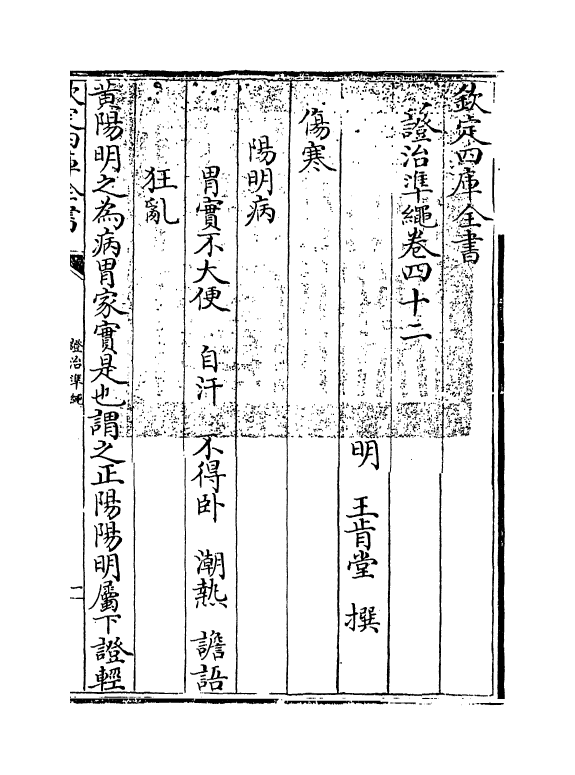 欽定四庫全書
證治準繩卷四十二
明 王肯堂 撰
傷寒
陽明病
胃實不大便 自汗 不得卧 潮熱 譫語
狂亂
黄陽明之為病胃家實是也謂之正陽陽明屬下證輕
欽定四庫全書
證治準繩